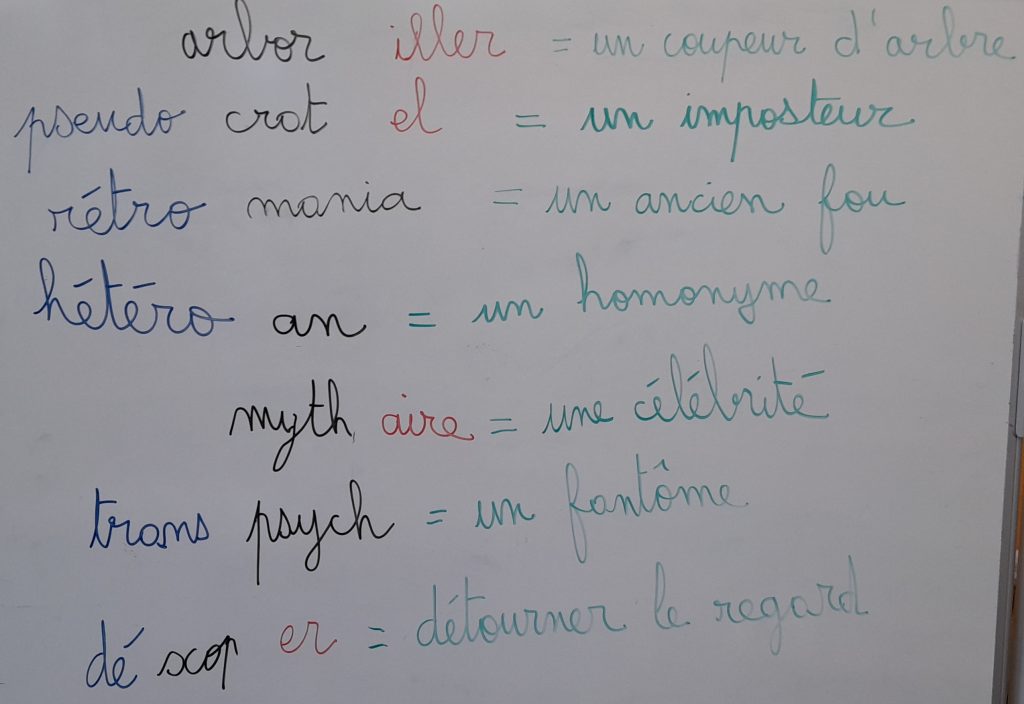 arbor iller = un coupeur d'arbre
pseudo crat el = un imposteur
rétro mania = un ancien fou
hétéro an = un homonyme
myth aire = une célébrité
trans psych = un fantôme
dé scop er = détourner le regard